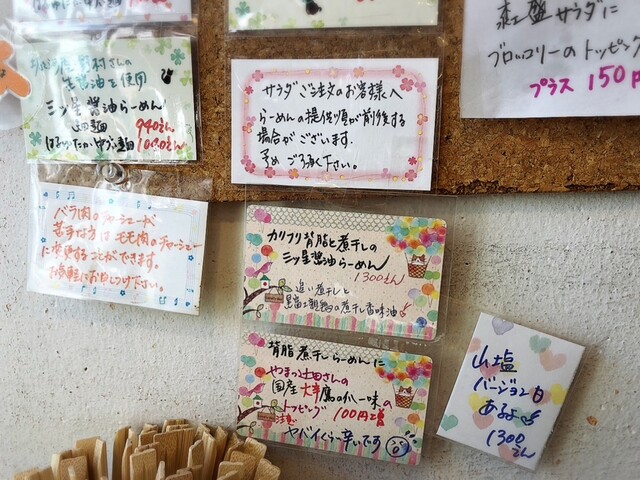 生醤油を使用
三ツ星醤油らーめん
940えん
1080えん
サラダご注文のお客様へ
らーめんの提供順が前後する
場合がございます。
予めご了承く下さい。
紅盤サラダに
ブロッコリーのトッピング
プラス150円
バラ肉のチャーシューが
苦手な方はモモ肉のチャーシュー
に変更することができます。
お気軽にお申しつけ下さい。
カリフリ背脂と煮干しの
三ツ星醤油らーめん
1300えん
追い煮干しと
黒富士製鶏の煮干し香味油
背脂煮干しらーめんに
やまつ辻田さんの
国産大辛鷹の爪一味の
トッピング100円増
注意
ヤバイくらい辛いです
山塩
バージョンも
あるよ
1300
えん